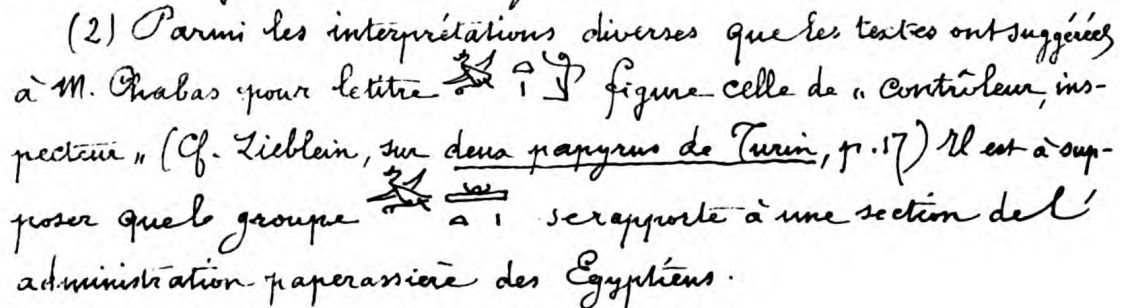 (2) Parmi les interprétations diverses que les textes ont suggérées
à M. Chabas pour le titre figure celle de „ contrôleur, ins-
pecteur „ (Cf. Lieblein, sur deux papyrus de Turin, p. 17) Il est à sup-
poser que le groupe se rapporte à une section de l'
administration paperassière des Egyptiens.